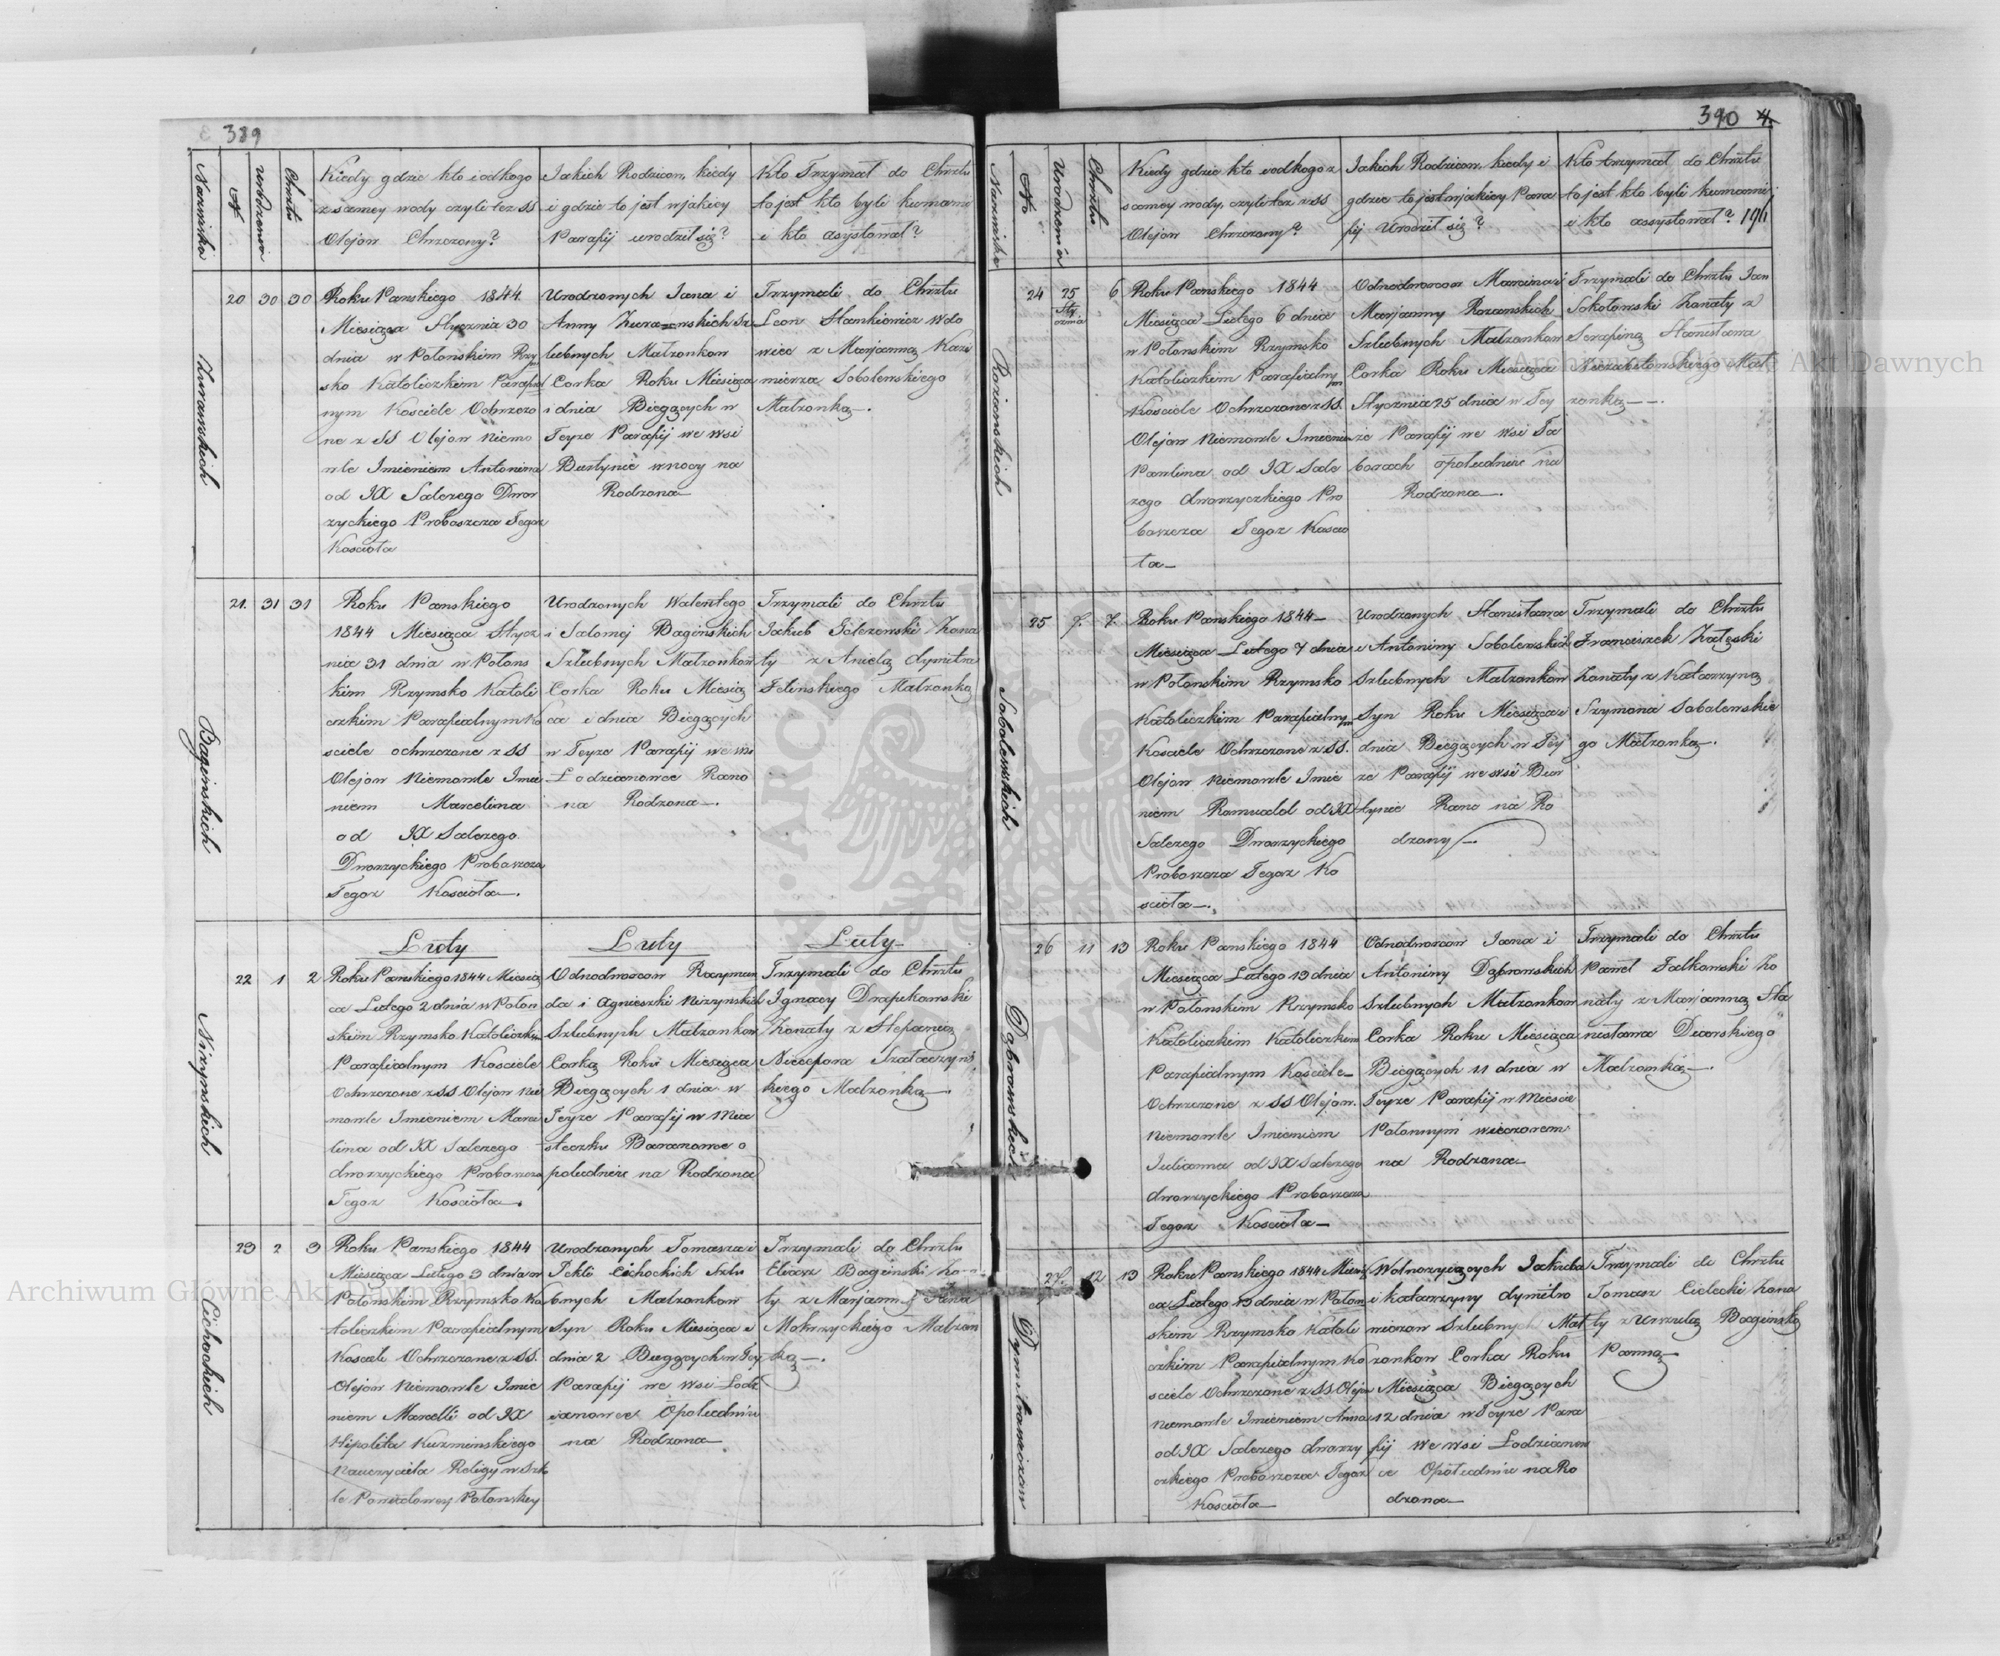 389
Nazwisko
N
Urodzenia
Chrztu
Kiedy gdzie kto i od kogo
z samey wody czyli tez SS
Olejow Chrzczony?
Jakich Rodzicow, kiedy
i gdzie to jest w jakiey
Parafij urodził się?
Kto Trzymał do Chrztu
to jest kto byli kumami
i kto asystował?
Zurawskich
20 30 30
Roku Panskiego 1844
Miesiąca Stycznia 30
dnia w Połonskim Rzym
sko Katoliczkim Parafial
nym Kosciele Ochrzczo
ne z SS Olejow Niemo
wle Imieniem Antonina
od JX Salezego Dwor
zyckiego Proboszcza Tegoz
Kosciola
Urodzonych Jana i
Anny Szlubnych Małzonkow
Corka Roku Miesiąca
i dnia Biegących w
Teyze Parafij we wsi
Burtynie w nocy na
Rodzona
Trzymali do Chrztu
Leon Stankiewicz wdo
wiec z Marjanną Kazi
mierza Sobolewskiego
Małzonką.
Baginskich
21. 31 31
Roku Panskiego
1844 Miesiąca Stycz
nia 31 dnia w Połons
kim Rzymsko Katoli
czkim Parafialnym Ko
sciele ochrzczone z SS
Olejow Niemowle Imie
niem Marcelina
od JX Salezego
Dworzyckiego Proboszcza
Tegoz Kosciola.
Urodzonych Walentego
i Salomej Baginskich
Szlubnych Małzonkow
Corka Roku Miesią
ca i dnia Biegących
w Teyze Parafij we wsi
Lodzianowce Rano
na Rodzona.
Trzymali do Chrztu
Jakub Gołezowski Zona
ty z Anielą Dymitra
Małzonką
Luty
Luty
Luty
Nizynskich
22 1 2
Roku Panskiego 1844 Miesią
ca Lutego 2 dnia w Połon
skim Rzymsko Katoliczkim
Parafialnym Kosciele
Ochrzczone z SS Olejow Nie
mowle Imieniem Marce
lina od JX Salezego
dworzyckiego Proboszcza
Tegoz Kosciola.
Odnodworcow Raymun
da i Agnieszki Nizynskich
Szlubnych Małzonkow
Corka Roku Miesiąca
Biegących 1 dnia w
Teyze Parafij w Mia
steczku Baranowce o
południu na Rodzona
Trzymali do Chrztu
Ignacy Drapikowski
Zonaty z Stepanią
Nicefora
kiego Małzonką.
Cichockich
23 2 3
Roku Panskiego 1844
Miesiąca Lutego 3 dnia w
Połonskim Rzymsko Ka
toliczkim Parafialnym
Kosciele Ochrzczone z SS.
Olejow Niemowle Imie
niem Marcelli od JX
Hipolita Kuzminskiego
Nauczyciela Religij w Szko
le Powiatowey Połonskey
Urodzonych Tomasza i
Tekli Cichockich Szlu
bnych Małzonkow
Syn Roku Miesiąca i
dnia 2 Biegących w Tey
Parafij we Wsi Lodz
ianowce Opołudniu
na Rodzona
Trzymali do Chrztu
Eliasz Baginski Zona
ty z Marjanną
Mokrzyckiego Małzon
ką.
390 4.
Nazwisko
No
Urodzenia
Chrztu
Kiedy gdzie kto i od kogo z
samey wody, czyli tez z SS
Olejow Chrzczony?
Jakich Rodzicow, kiedy i
gdzie to jest w jakiey Para
fij Urodził się?
Kto trzymał do Chrztu
to jest kto byli kumami
i kto assystował?
Rozanskich
24 25 Sty cznia 6
Roku Panskiego 1844
Miesiąca Lutego 6 dnia
w Połonskim Rzymsko
Katoliczkim Parafialnym
Kosciele Ochrzczone z SS.
Olejow Niemowle Imieniem
Paulina od JX Sale
zego dworzyczkiego Pro
boszcza Tegoz Koscio
ła
Odnodworcow Marcina i
Marjanny Rozanskich
Szlubnych Małzonkow
Corka Roku Miesiąca
Stycznia 25 dnia w Tey
że Parafij we wsi Ta
borach opołudniu na
Rodzona.
Trzymali do Chrztu Jan
Sokołowski Zonaty z
Serafiną Stanisława
Niezabitowskiego Mał
zonką.
Sobolewskich
25 7. 7.
Roku Panskiego 1844
Miesiąca Lutego 7 dnia
w Połonskim Rzymsko
Katoliczkim Parafialnym
Kosciele Ochrzczone z SS.
Olejow Niemowle Imie
niem Romuald od JX
Salezego Dworzyckiego
Proboszcza Tegoz Ko
sciola.
Urodzonych Stanisława
i Antoniny Sobolewskich
Szlubnych Małzonkow
Syn Roku Miesiąca i
dnia Biegących w Tey
ze Parafij we wsi Bur
tynie Rano na Ro
dzony
Trzymali do Chrztu
Franciszek Załęski
Zonaty z Katarzyną
Szymona Sobolewskie
go Małzonką.
Dąbrowskich
26 11 13
Roku Panskiego 1844
Miesiąca Lutego 13 dnia
w Połonskim Rzymsko
Katoliczkim Katoliczkim
Parafialnym Kosciele
Ochrzczone z SS Olejow.
Niemowle Imieniem
Julianna od JX Salezego
dworzyckiego Proboszcza
Tegoz Kosciola
Odnodworcow Jana i
Antoniny Dąbrowskich
Szlubnych Małzonkow
Corka Roku Miesiąca
Biegących 11 dnia w
Teyze Parafij w Miescie
Połonnym wieczorem
na Rodzona
Trzymali do Chrztu
Paweł Falkowski Zo
naty z Marjanną Sta
nisława
Małzonką.
Dymitrowiczow
27. 12 13
Roku Panskiego 1844 Miesią
ca Lutego 13 dnia w Połon
skim Rzymsko Katoli
czkim Parafialnym Ko
sciele Ochrzczone z SS Olejow
Niemowle Imieniem Anna
od JX Salezego dworzy
czkiego Proboszcza Tegoz
Kosciola
Wolnozyiących Jakuba
i Katarzyny Dymitro
wiczow Szlubnych Mał
zonkow Corka Roku
Miesiąca Biegących
12 dnia w Teyze Para
fij We wsi Lodzianow
ce Opołudniu na Ro
dzona
Trzymali do Chrztu
Tomasz Cielecki Zona
ty z Urszulą Baginską
Panną
Archiwum Główne Akt Dawnych
Archiwum Główne Akt Dawnych